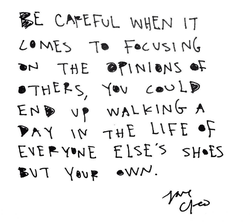 BE CAREFUL WHEN IT
COMES TO FOCUSING
ON THE OPINIONS OF
OTHERS, YOU COULD
END UP WALKING A
DAY IN THE LIFE OF
EVERYONE ELSE'S SHOES
BUT YOUR OWN.